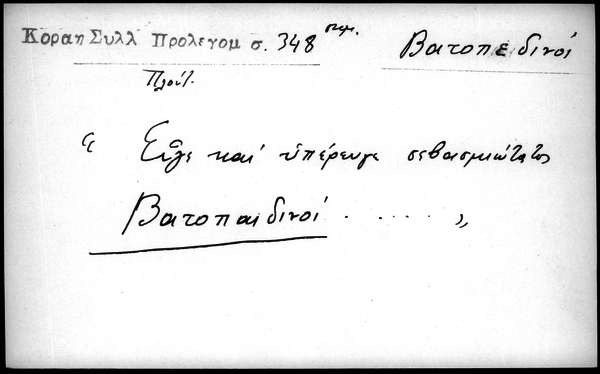 Κοραη Συλλ Προλεγομ σ. 348 σημ.
Βατοπεδινοί
Πλούτ.
“ Εὖγε καὶ ὑπέρευγε σεβασμιώτατοι
Βατοπαιδινοί . . . . . ”